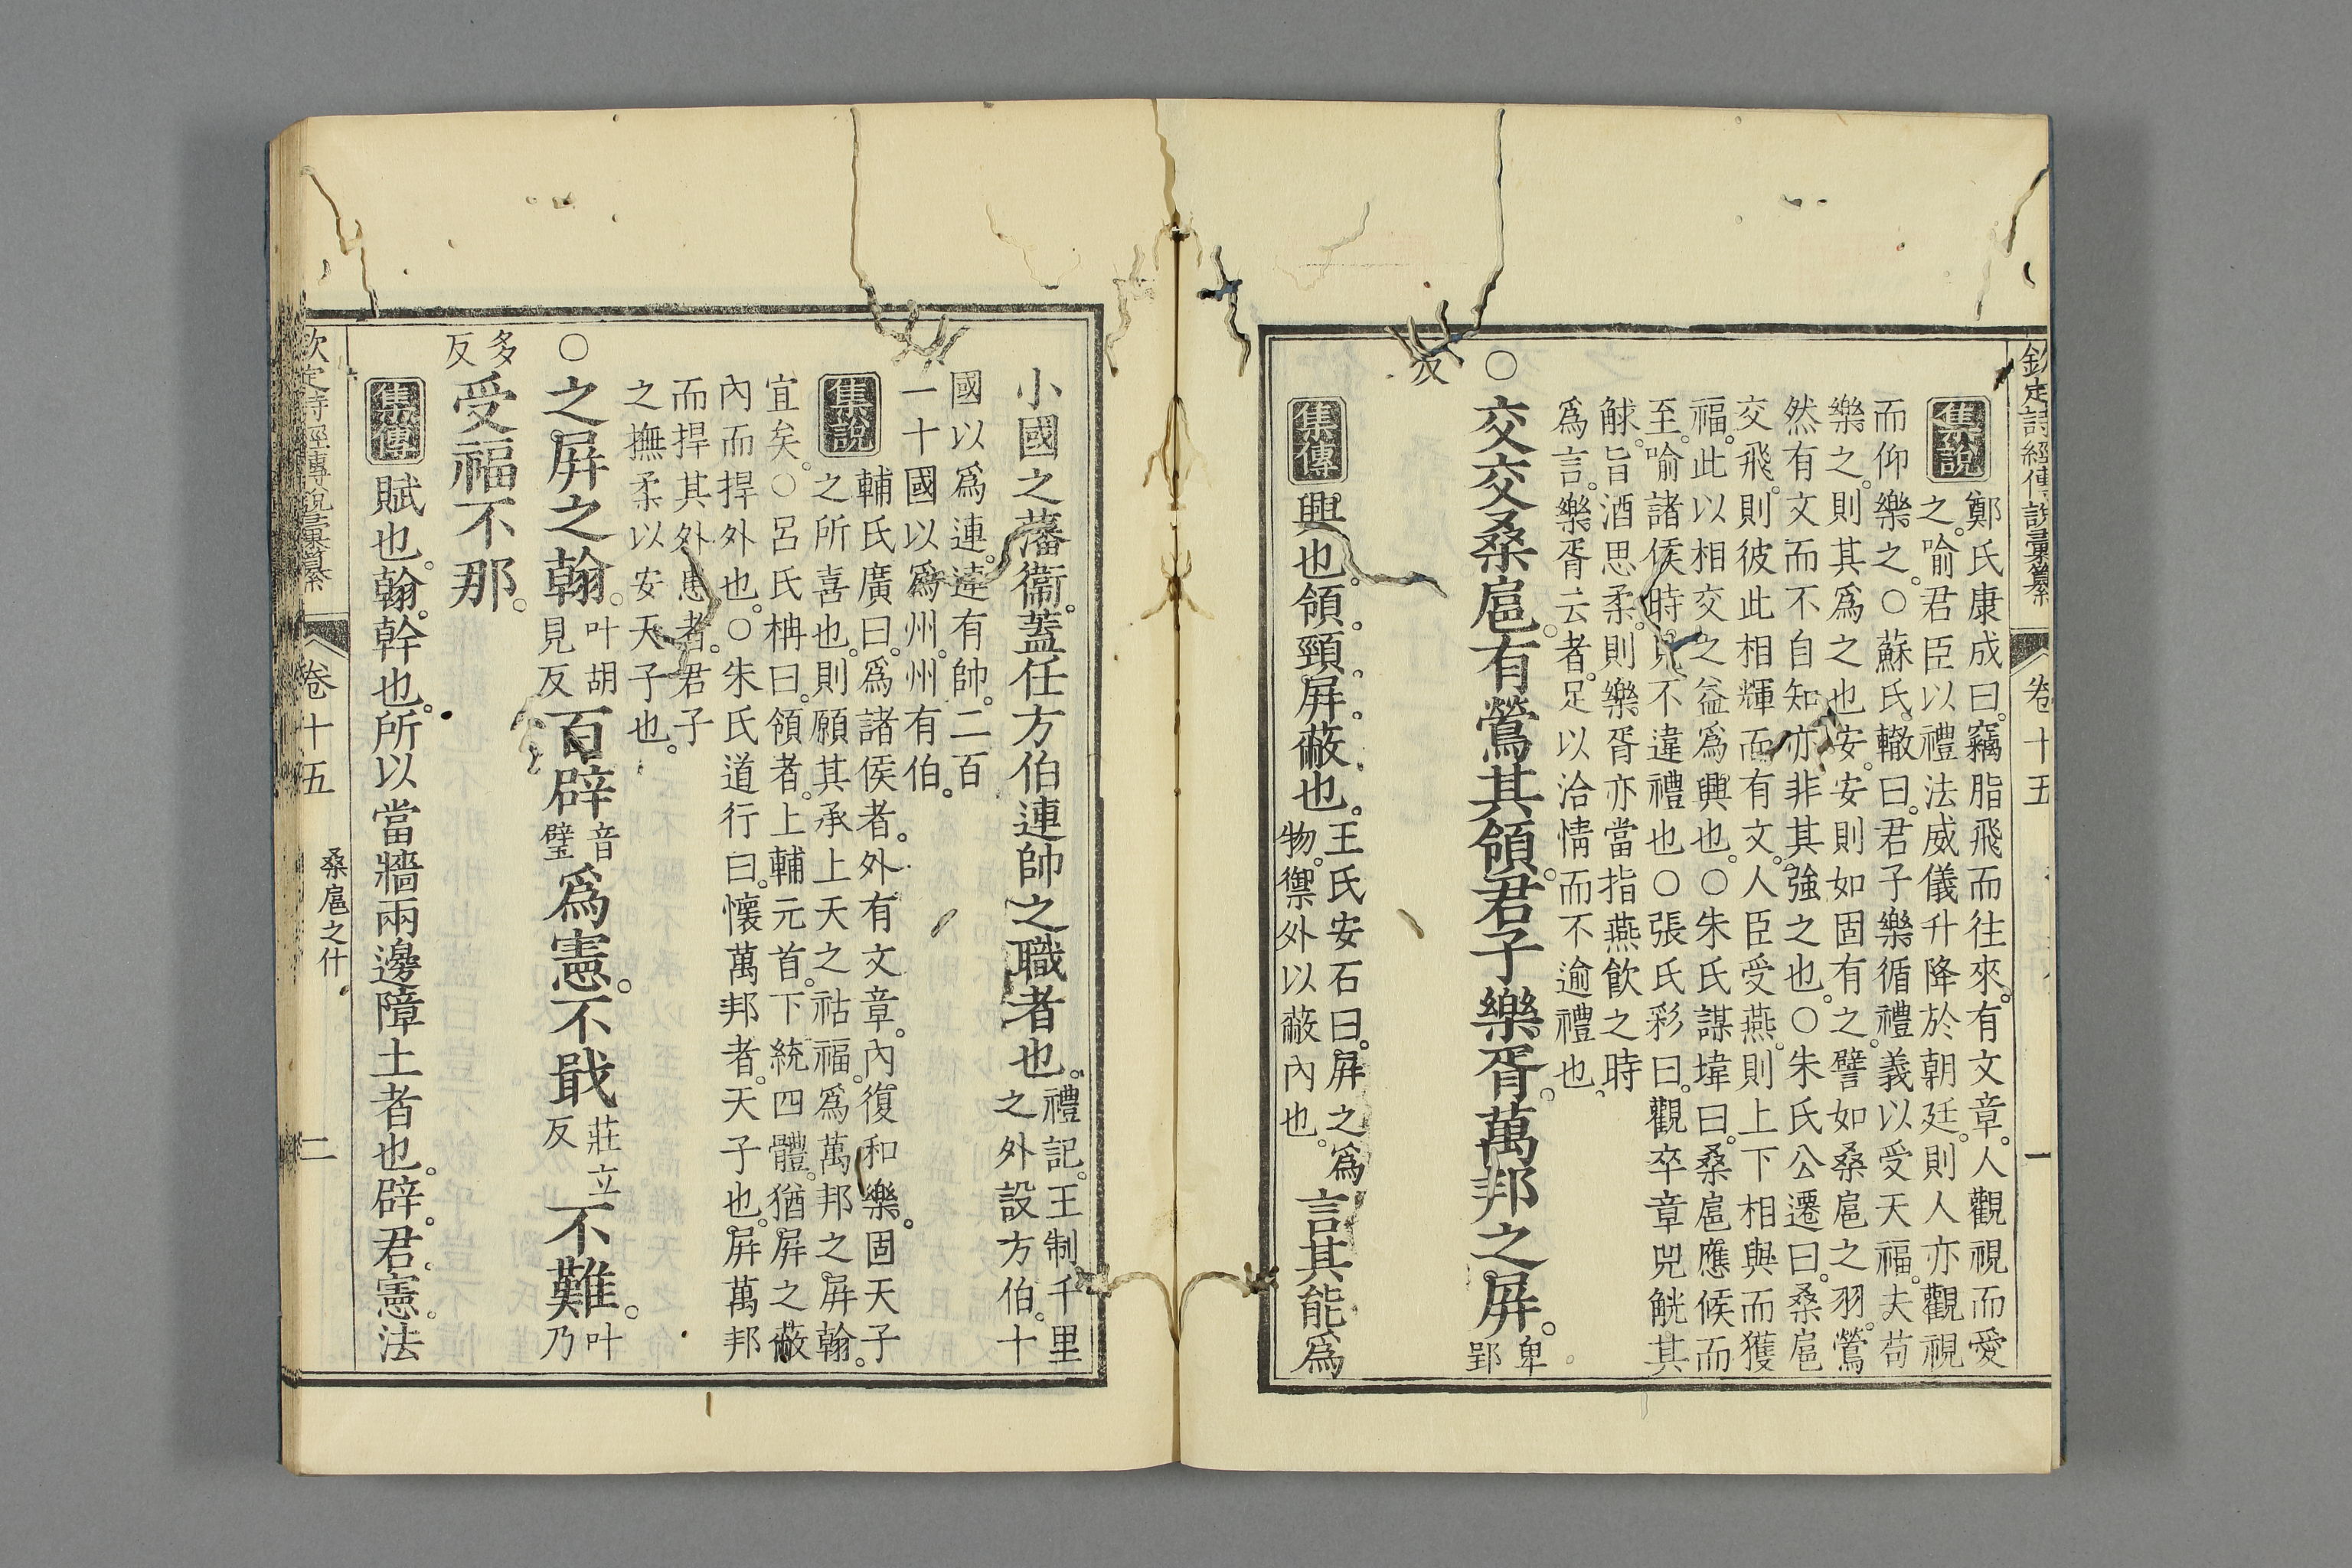 欽定詩經傳說彙纂　卷十五　一
集說
鄭氏康成曰。竊脂飛而往來。有文章。人觀視而愛
之。喻君臣以禮法威儀升降於朝廷。則人亦觀視
而仰樂之。○蘇氏轍曰。君子樂循禮義以受天福。夫苟
樂之。則其爲之也安。安則如固有之。譬如桑扈之羽。鶯
然有文而不自知。亦非其強之也。○朱氏公遷曰。桑扈
交飛。則彼此相輝而有文。人臣受燕。則上下相與而獲
福。此以相交之益爲興也。○朱氏謀㙔曰。桑扈應候而
至。喻諸侯時見不違禮也○張氏彩曰。觀卒章兕觥其
觩。旨酒思柔。則樂胥亦當指燕飮之時
爲言。樂胥云者。足以洽情而不逾禮也。
○交交桑扈。有鶯其領。君子樂胥。萬邦之屏。卑郢
反
集傳　興也。領。頸。屛。蔽也。王氏安石曰。屛之爲物。禦外以蔽內也。言其能爲
小國之藩衞。蓋任方伯連帥之職者也。禮記。王制千里之外設方伯。十
國以爲連。連有帥。二百
一十國以爲州。州有伯。
集說
輔氏廣曰。爲諸侯者。外有文章。內復和樂。固天子
之所喜也。則願其承上天之祜福。爲萬邦之屛翰。
宜矣。○呂氏柟曰。領者。上輔元首。下統四體。猶屛之蔽
內而捍外也。○朱氏道行曰。懷萬邦者。天子也。屛萬邦
而捍其外患者。君子
之撫柔以安天子也。
○之屛之翰。叶胡見反百辟音璧爲憲。不戢莊立反不難。叶乃
多反受福不那。
集傳　賦也。翰。幹也。所以當牆兩邊障土者也。辟。君。憲。法
欽定詩經傳說彙纂　卷十五　桑扈之什　二